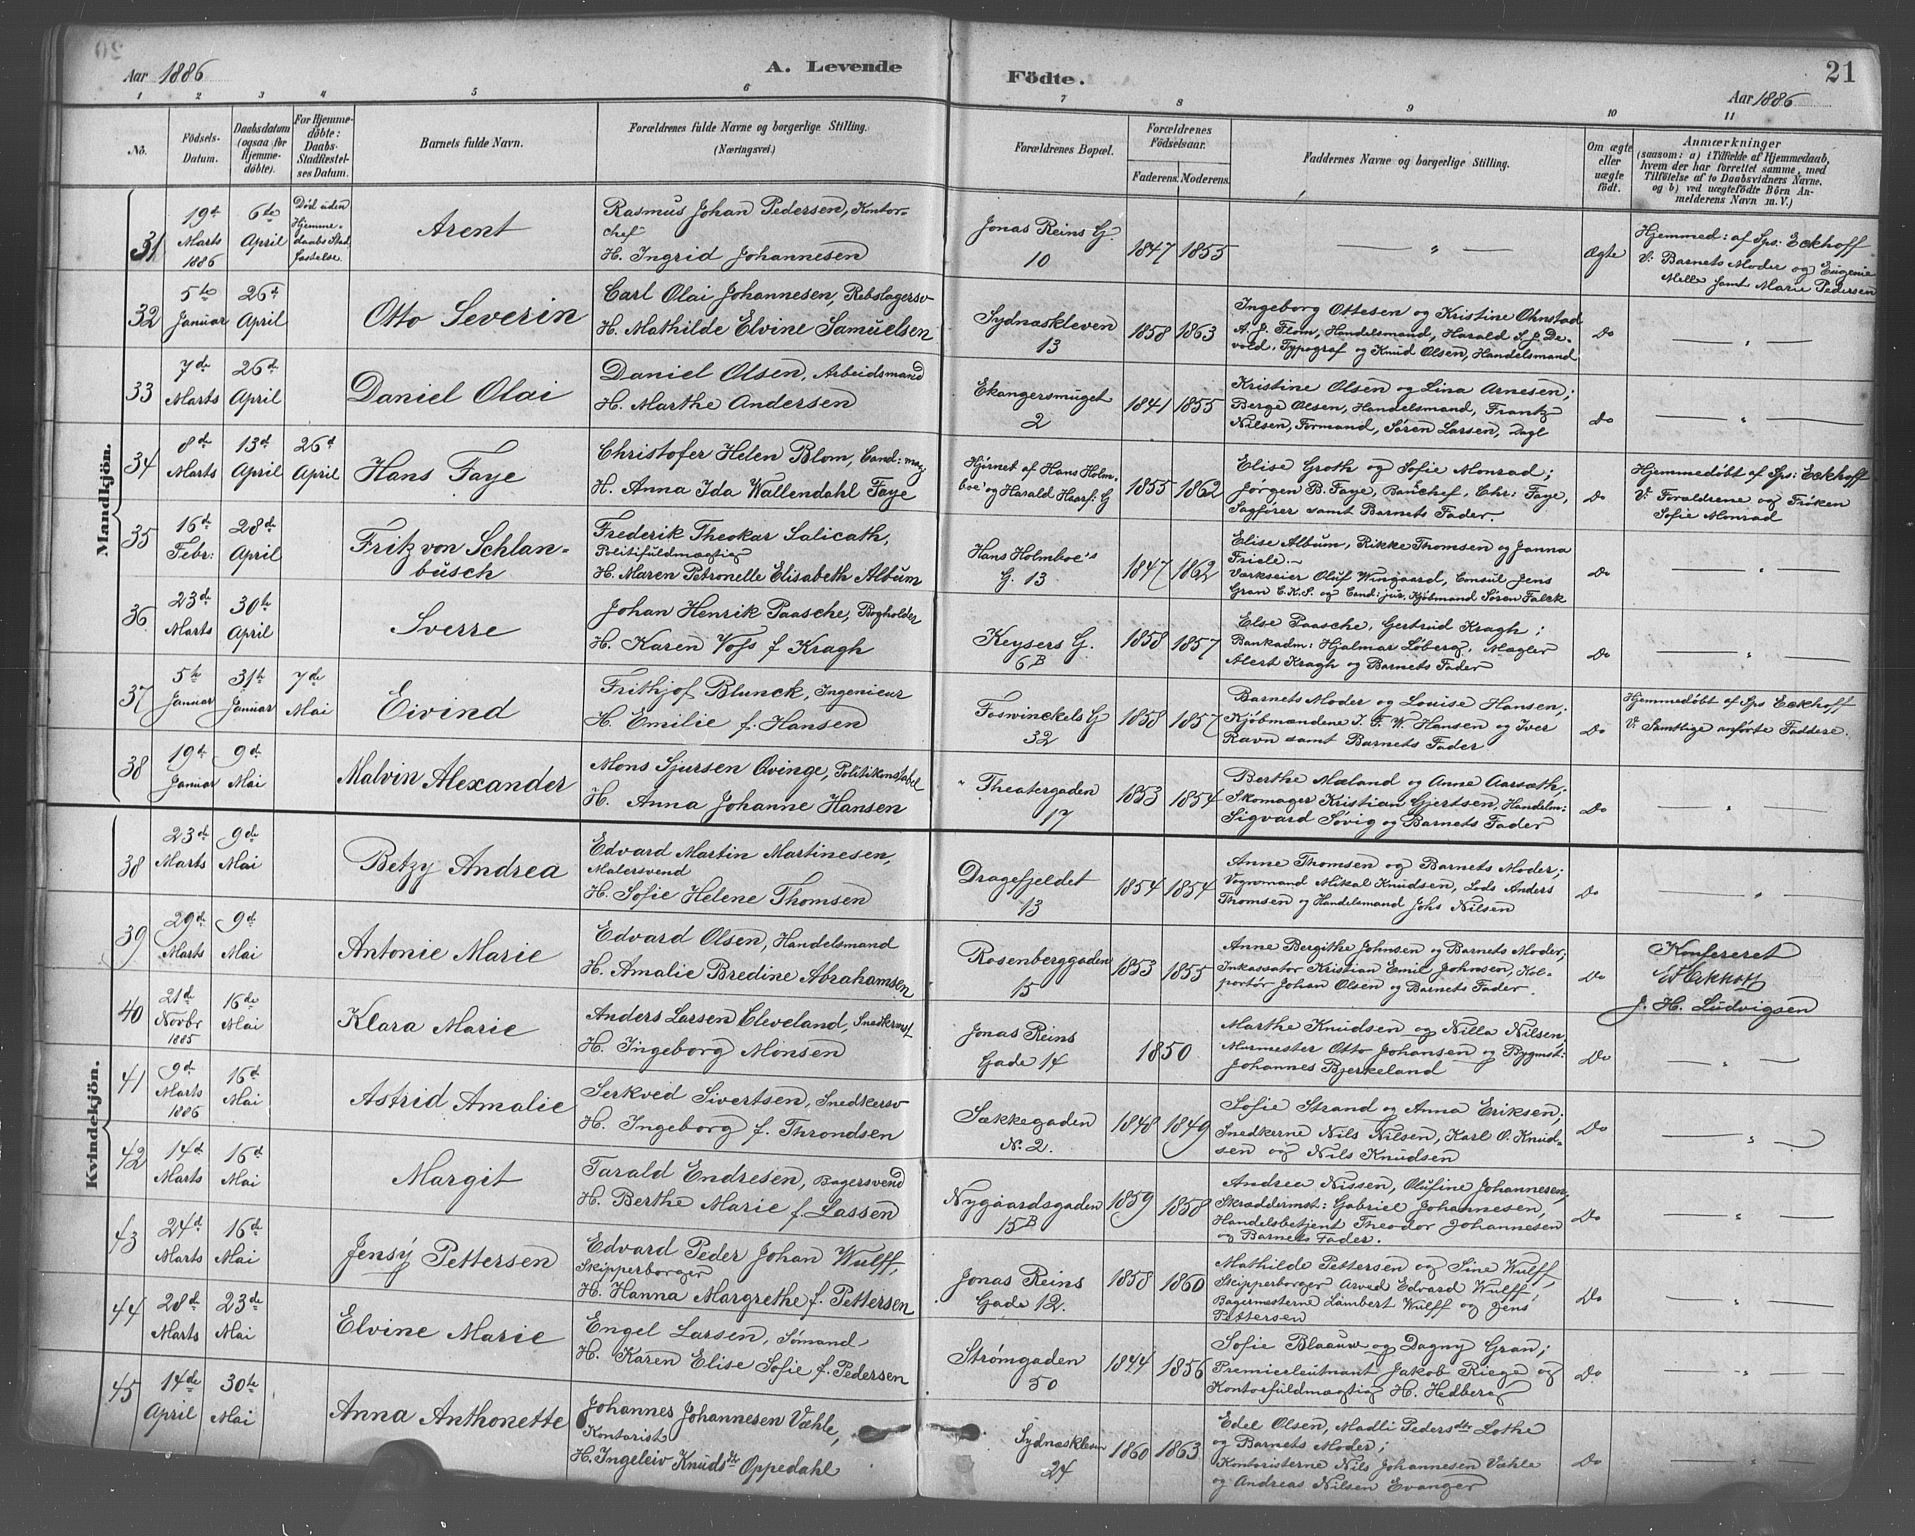 Aar 1886
A. Levende
Födte.
21
Aar 1886
1 2 3 4 5 6 7 8 9 10 11
No.
Födsels-
Datum.
Daabsdatum
(ogsaa for
Hjemme-
döbte).
For Hjemme-
döbte:
Daabs-
Stadfæstel-
ses Datum.
Barnets fulde Navn.
Forældrenes fulde Navne og borgerlige Stilling.
(Næringsvei.)
Forældrenes Bopæl.
Forældrenes
Födselsaar.
Faderens. Moderens.
Faddernes Navne og borgerlige Stilling.
Om ægte
eller
uægte
födt.
Anmærkninger
(saasom: a) i Tilfælde af Hjemmedaab,
hvem der har forrettet samme, med
Tilföielse af to Daabsvidners Navne,
og b) ved uægtefödte Börn An-
melderens Navn m. V.)
Mandkjön.
31
19de
Marts
1886
6te
April
Død uden
Hjemme-
daabs Stad
fæstelse
Arent
Rasmus Johan Pedersen, Kontor-
chef
H. Ingrid Johannesen
Jonas Reins G.
10
1847 1855
— " —
Ægte
Hjemmed: af Sps: Eckhoff
V: Barnets Moder og Eugenie
Melle samt Marie Pedersen
32
5te
Januar
26de
April
Otto Severin
Carl Olai Johannesen, Rebslagersv
H. Mathilde Elvine Samuelsen
Sydnæskleven
13
1858 1863
Ingeborg Ottesen og Kristine Ohnstad
A. J. Flom, Handelsmand, Harald S. J. De-
vold, Typograf og Knud Olsen, Handelsmand
Do
— " —
33
7de
Marts
26de
April
Daniel Olai
Daniel Olsen, Arbeidsmand
H. Marthe Andersen
Ekangersmuget
2
1841 1855
Kristine Olsen og Lina Arnesen;
Berge Olsen, Handelsmand, Frantz
Nilsen, Formand, Søren Larsen, Dagl
Do
— " —
34
8de
Marts
13de
April
26de
April
Hans Faye
Christofer Helen Blom, Cand: mag
H. Anna Ida Wallendahl Faye
Hjørnet af Hans Holm-
boe' og Harald Haarf: G
1855 1862
Elise Groth og Sofie Monrad;
Jørgen B. Faye, Bankchef, Chr: Faye,
Sagfører samt Barnets Fader.
Do
Hjemmedøbt af Sps: Eckhoff
V: Forældrene og Frøken
Sofie Monrad
35
16de
Febr:
28de
April
Fritz von Schlan-
busch
Frederik Theokar Salicath,
Politifuldmægtig
H. Maren Petronelle Elisabeth Album
Hans Holmboe's
G. 13
1847 1862
Elise Album, Rikke Thomsen og Janna
Friele —
Værkseier Oluf Wingaard, Consul Jens
Gran C.K.S. og Cand: jur. Kjøbmand Søren Falck
Do
— " —
36
23de
Marts
30te
April
Sverre
Johan Henrik Paasche, Bogholder
H. Karen Voss f Kragh
Keysers G.
6B
1858 1857
Else Paasche, Gertrud Kragh;
Bankadm: Hjalmar Løberg, Mægler
Alert Kragh og Barnets Fader
Do
— " —
37
5te
Januar
31te
Januar
7de
Mai
Eivind
Frithjof Blunck, Ingenieur
H. Emilie f. Hansen
Foswinckels G
32
1858 1857
Barnets Moder og Louise Hansen;
Kjøbmændene J. F. W. Hansen og Iver
Ravn samt Barnets Fader
Do
Hjemmedøbt af Sps Eckhoff
V: Samtlige anførte Faddere.
38
19de
Januar
9de
Mai
Malvin Alexander
Mons Sjursen Qvinge, Politikonstabel
H. Anna Johanne Hansen
Theatergaden
17
1853 1854
Berthe Mæland og Anne Aarsæth,
Skomager Kristian Gjertsen, Handelm:
Sigvard Søvig og Barnets Fader
Do
— " —
Kvindekjön.
38
23de
Marts
9de
Mai
Betzy Andrea
Edvard Martin Martinesen,
Malersvend
H. Sofie Helene Thomsen
Dragefjeldet
13
1854 1854
Anne Thomsen og Barnets Moder;
Vognmand Mikal Knudsen, Lods Anders
Thomsen og Handelsmand Johs Nilsen
Do
— " —
39
29de
Marts
9de
Mai
Antonie Marie
Edvard Olsen, Handelsmand
H. Amalie Bredine Abrahamsen
Rosenberggaden
15
1853 1855
Anne Bergithe Johnsen og Barnets Moder,
Inkassator Kristian Emil Johnsen, Kol-
portør Johan Olsen og Barnets Fader.
Do
Konfereret
Eckhoff
J. H. Ludvigsen
40
21de
Novbr
1885
16de
Mai
Klara Marie
Anders Larsen Cleveland, Snedkermst.
H. Ingeborg Monsen
Jonas Reins
Gade 14
1850
Marthe Knudsen og Nilla Nilsen,
Murmester Otto Johansen og Bygmst:
Johannes Bjerkeland
Do
— " —
41
9de
Marts
1886
16de
Mai
Astrid Amalie
Serkved Sivertsen, Snedkersv
H. Ingeborg f. Throndsen
Sækkegaden
No. 2.
1848 1849
Sofie Strand og Anna Eriksen;
Snedkerne Nils Nilsen, Karl O. Knud-
sen og Nils Knudsen
Do
— " —
42
14de
Marts
16de
Mai
Margit
Tarald Endresen, Bagersvend
H. Berthe Marie f. Lassen
Nygaardsgaden
15B
1859 1858
Andrea Nissen, Olufine Johannesen,
Skræddermst: Gabriel Johannesen,
Handelsbetjent Theodor Johannesen
og Barnets Fader.
Do
— " —
43
24de
Marts
16de
Mai
Jensy Pettersen
Edvard Peder Johan Wulff,
Skipperborger
H. Hanna Margrethe f. Pettersen
Jonas Reins
Gade 12.
1858 1860
Mathilde Pettersen og Sine Wulff,
Skipperborger Arved Edvard Wulff,
Bagermesterne Lambert Wulff og Jens
Pettersen
Do
— " —
44
28de
Marts
23de
Mai
Elvine Marie
Engel Larsen, Sømand
H. Karen Elise Sofie f. Pedersen
Strømgaden
50
1844 1856
Sofie Blaauw og Dagny Gran;
Premierleutnant Jakob Riege og
Kontorfuldmægtig H. Hedberg
Do
— " —
45
14de
April
30te
Mai
Anna Anthonette
Johannes Johannesen Væhle,
Kontorist
H. Ingeleiv Knudsdtr Oppedahl
Sydnæskleven
24
1860 1863
Edel Olsen, Madli Pedersdtr Lothe
og Barnets Moder;
Kontoristerne Nils Johannesen Væhle
og Andreas Nilsen Evanger
Do
— " —